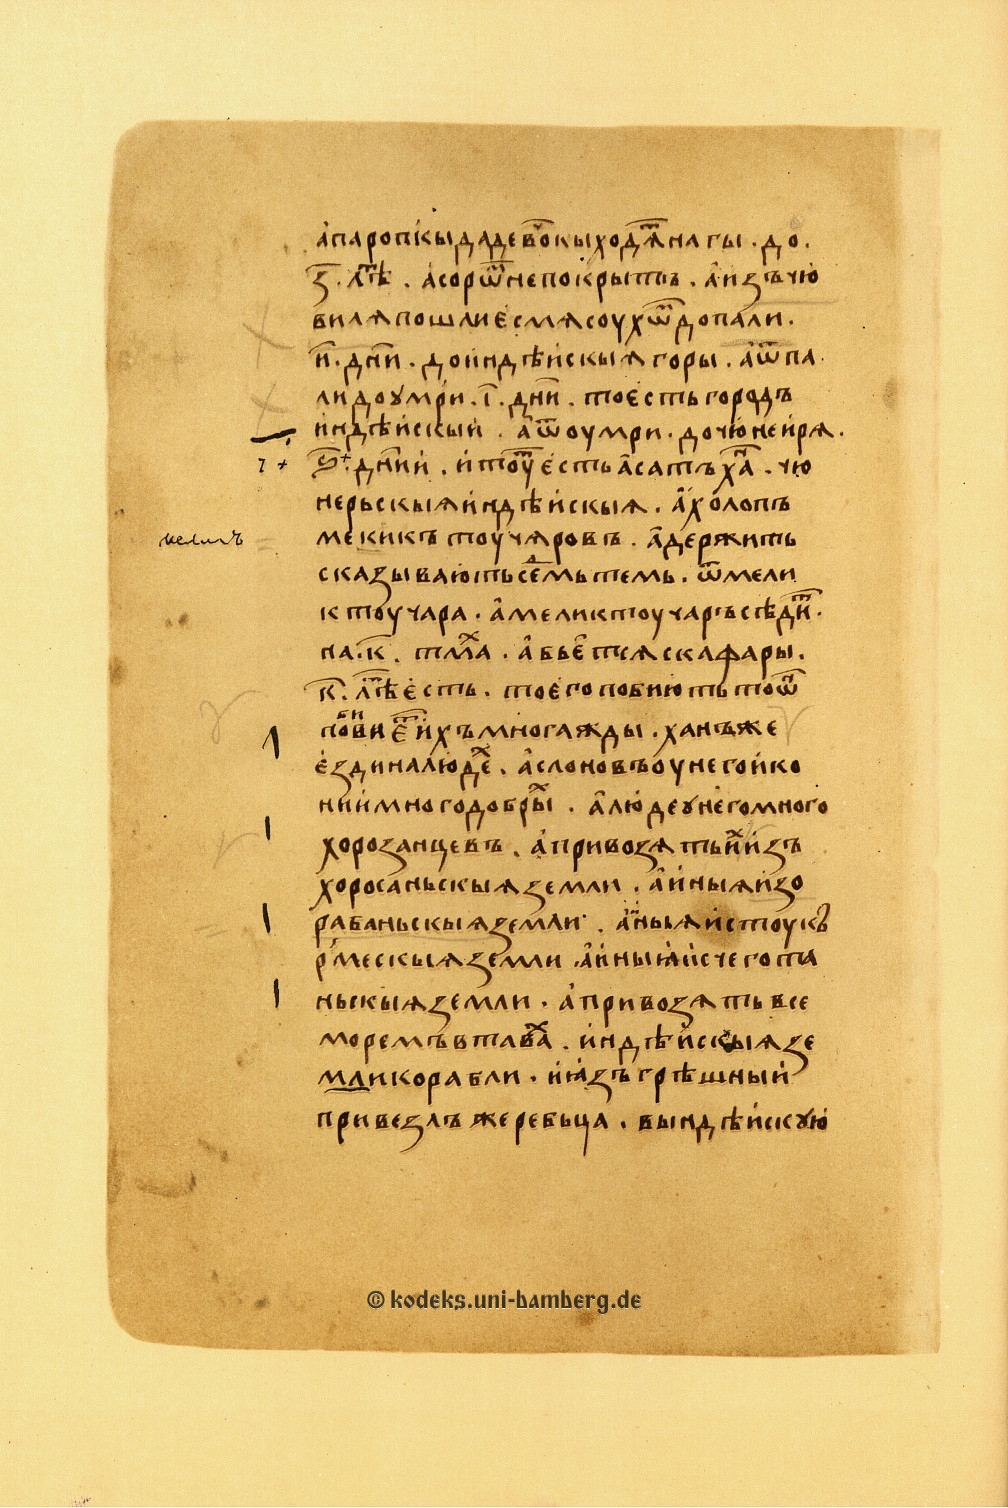 а҆паропкы да девоⷱ҇кы ходⷮ҇ѧ нагы . до .
з҃ . лⷮ҇ѣ . а҆соро҇ⷨ не покрытъ . а҆изъ чю
вилѧ пошли е҆смѧ соухоⷨ҇ до пали .
и҃ . дн҃и . до и҆ндѣи҆скыѧ горы . а҆ ѿ па
ли до оумри . і҃ . дн҃и . то е҆сть городъ
и҆ндѣи҆скыи҆ . а҆ ѿ оумри . до чю҆неи҆рѧ .
дн҃ии҆ . и҆ тоуⷮ҇ е҆сть а҆сатъ хаⷩ҇ . чю
нерьскыѧ и҆ндѣи҆скыѧ . а҆ холопъ
меликъ
мекикътоучѧровъ . а҆ держить
сказываю҆ть сеⷣмь темь . ѿ мели
ктоучара . а҆ меликтоучаръ сѣдиⷮ҇ .
на . к҃ . тмаⷯ . а҆ бье҆тсѧ с кафары .
к҃ . лⷮ҇ѣ е҆сть . то е҆го побию҆ть тоⷨ҇
побиви е҆ⷮ҇ и҆хъ многажды . ханъ же
е҆здина людеⷯ . а҆ слоновъ оу него и҆ ко
нии҆ много добрыⷯ . а҆ лю҆де у него много
хорозанцевъ . а҆ привозѧть иⷯ и҆зъ
хоросаньскыѧ земли . а҆ и҆ныѧ и҆зо
рабаньскыѧ земли . а҆ иныѧ и҆с тоукъ
рмескыѧ земли . а҆ и҆ныѧ и҆с чегота
ньскыѧ земли . а҆ привозѧть все
моремъ в таваⷯ . и҆ндѣи҆скыѧ зе
мли корабли . и҆ ꙗ҆зъ грѣшныи҆
привезлъ жеребьца . в ындѣи҆скую҆
© kodeks.uni-bamberg.de